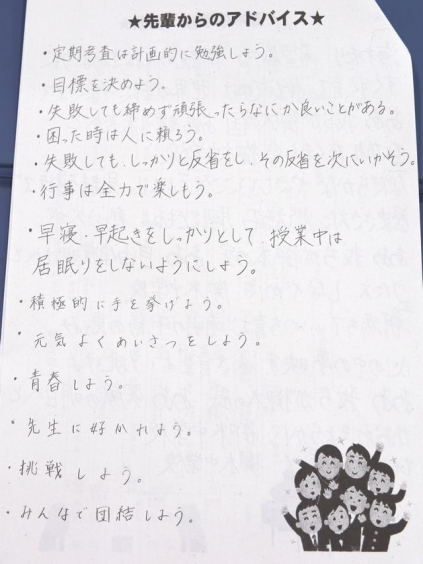 ★先輩からのアドバイス★
・定期考査は計画的に勉強しよう。
・目標を決めよう。
・失敗しても諦めず頑張ったらなにか良いことがある。
・困った時は人に頼ろう。
・失敗しても、しっかりと反省をし、その反省を次にいかそう。
・行事は全力で楽しもう。
・早寝、早起きをしっかりとして、授業中は
居眠りをしないようにしよう。
・積極的に手を挙げよう。
・元気よくあいさつをしよう。
・青春しよう。
・先生に好かれよう。
・挑戦しよう。
・みんなで団結しよう。